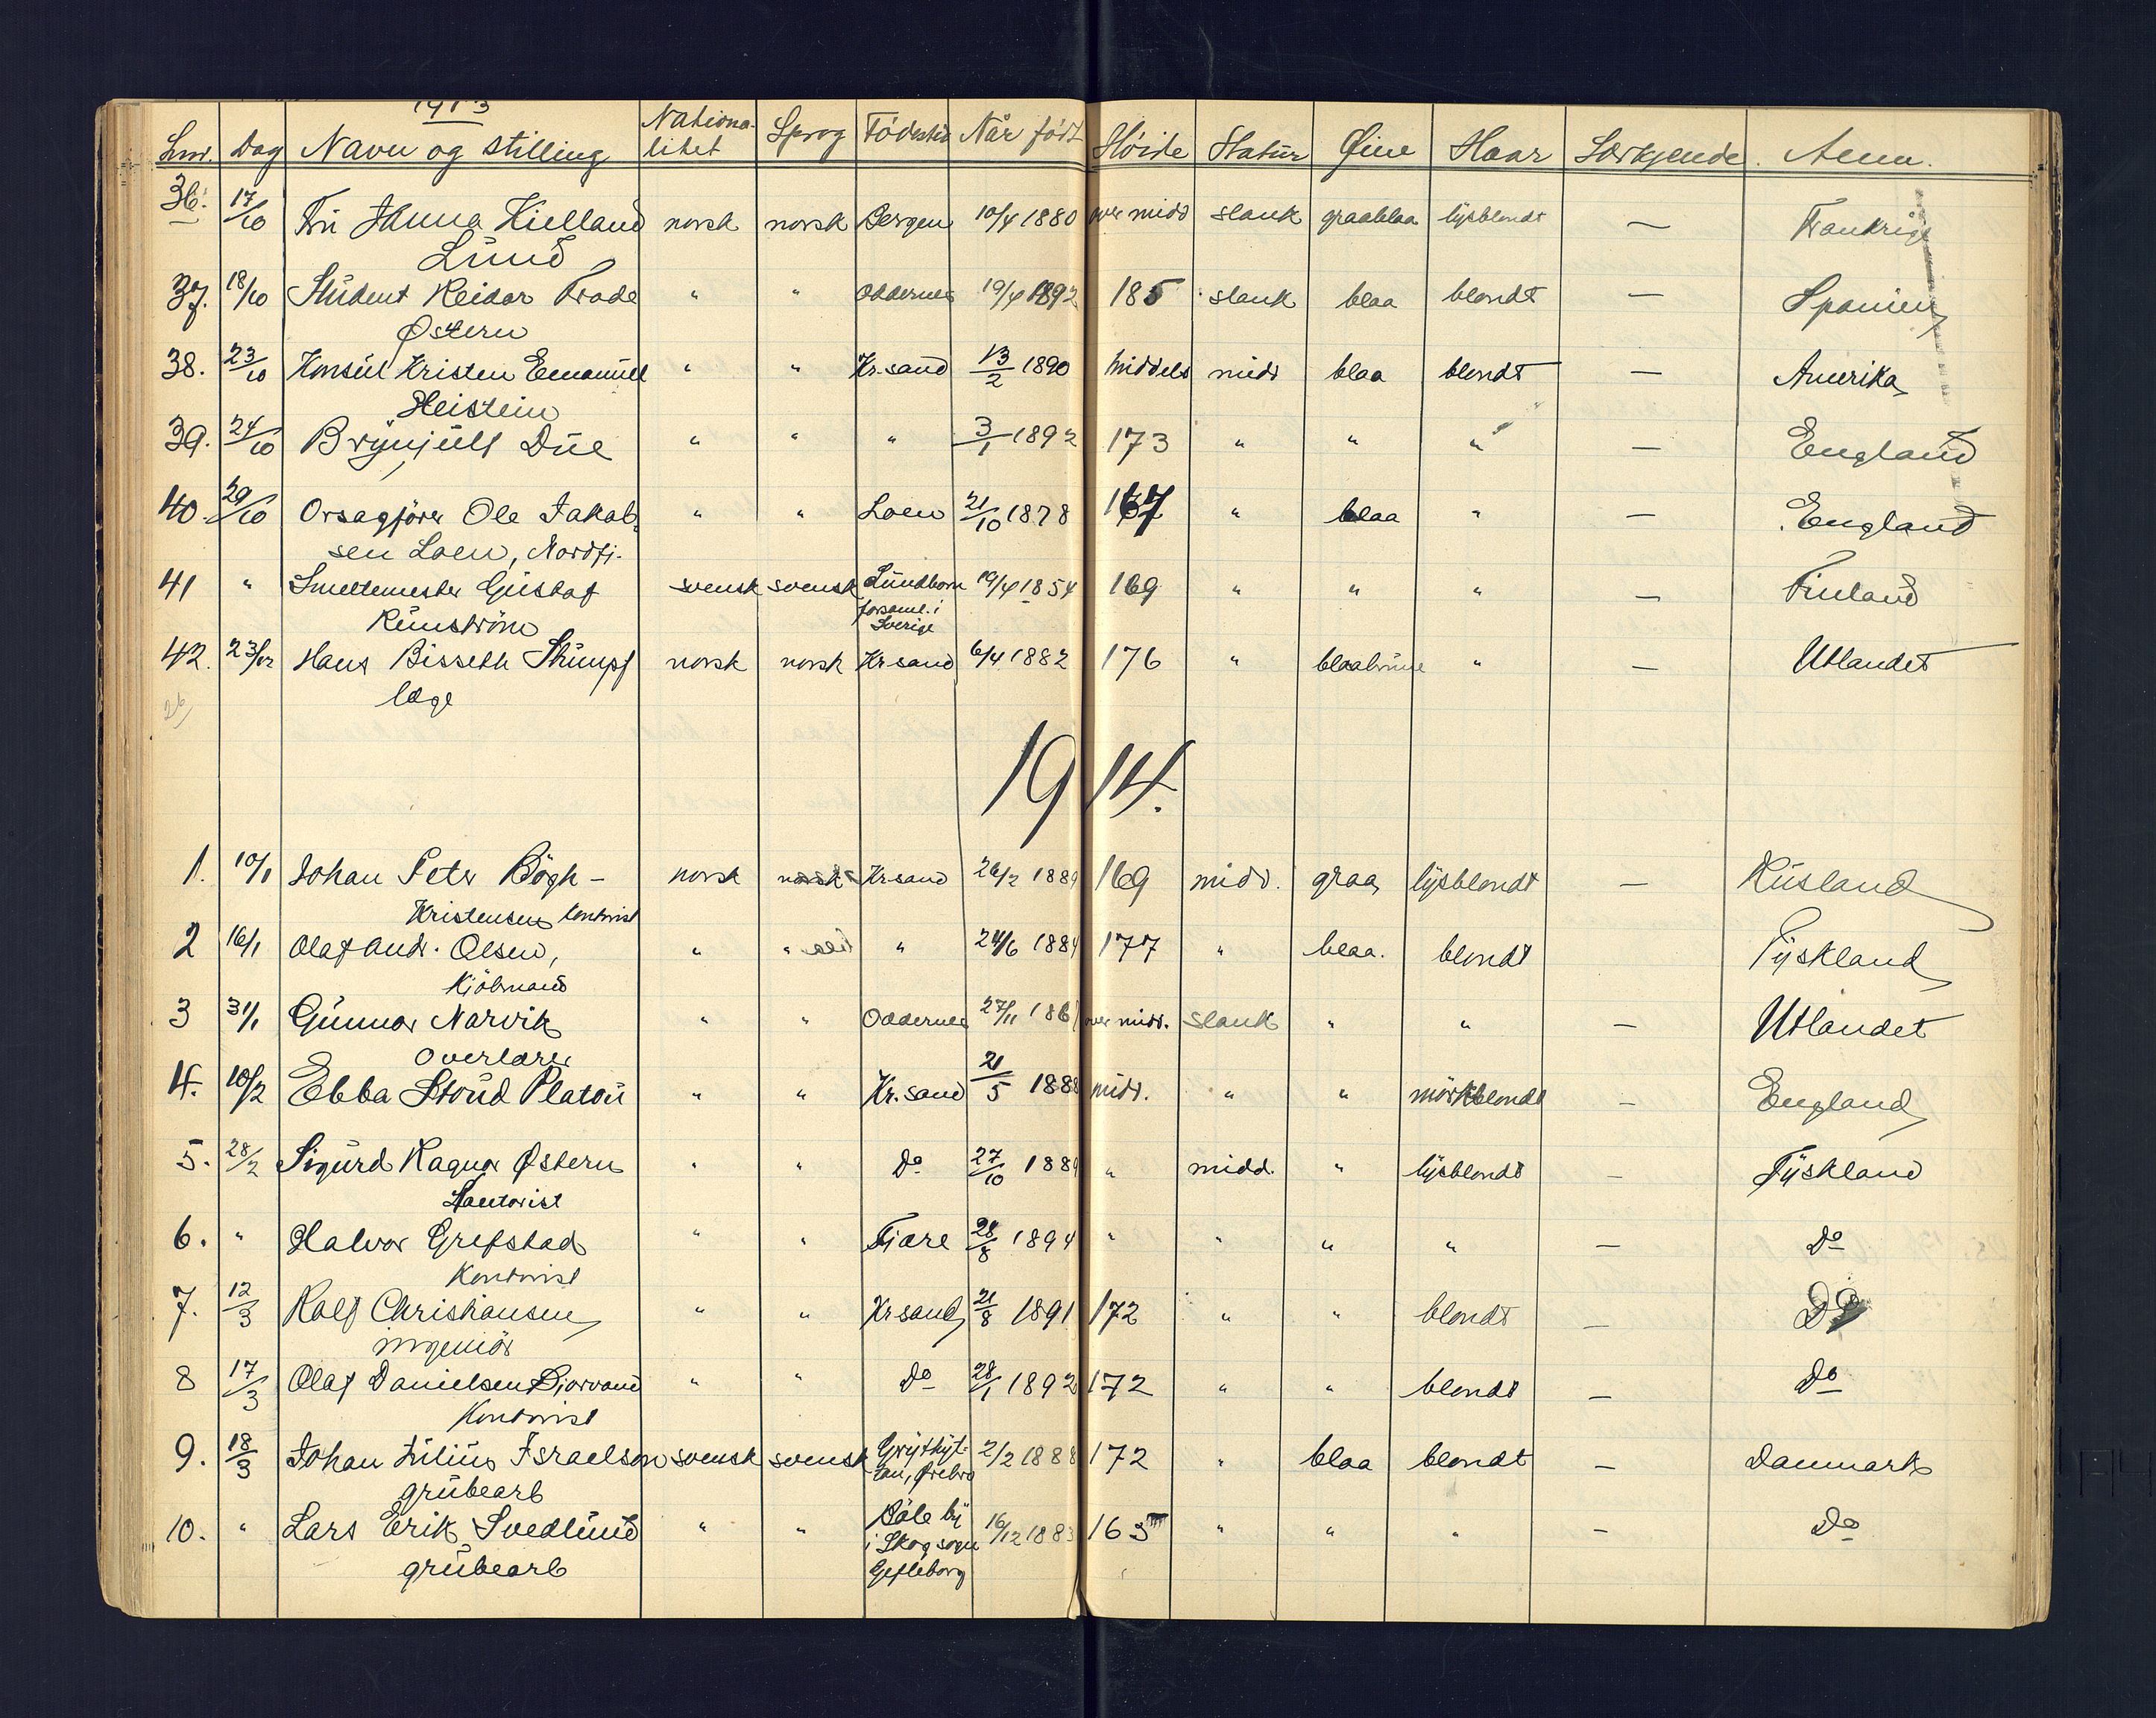 1913
Lnr. Dag Navn og stilling Nationa- Sprog Fødested Når født Høide Statur Øine Haar Særkjende. Anm.
litet
36. 17/10 Fru Kielland norsk norsk Bergen 10/4 1880 over midd slank graablaa lysblondt — Frankrige
Lund
37. 18/10 Student Reidar Frode " " Oddernes 19/4 1892 185 slank blaa blondt — Spanien
Østern
38. 23/10 Konsul Kristen Emanuel " " Kr.sand 13/2 1890 Middels midd blaa blondt — Amerika
Heistein
39. 24/10 Brynjulf Due " " " 3/1 1892 173 " " " — England
40. 29/10 Orsagfører Ole Jakob- " " Loen 21/10 1878 " blaa " — England
sen Loen, Nordfj.
41 " Smeltemester Gustaf svensk svensk 19/4 1854 169 " " " — Finland
forsaml. i
Runström Sverige
42. 23/12 Hans Bisseth Stumpf norsk norsk Kr sand 6/4 1882 176 " blaabrune " — Utlandet
læge
26
1914.
1. 10/1 Johan Peter Bögh - norsk norsk Kr.sand 26/2 1889 169 midd. graa lysblondt — Rusland
Kristensen kontorist
2 16/1 Olaf Andr. Olsen, " " " 24/6 1884 177 " blaa. blondt Tyskland
Kjöbmand
3 31/1 Gunnar Narvik " " Oddernes 27/11 186 over midd. slank " " — Utlandet
Overlærer
4. 10/2 Ebba Stoud Platou " " Kr.sand 21/5 1888 midd. " " mörkblondt — England
5. 28/2 Sigurd Ragnar Østern " " Do 27/10 1889 " midd. " lysblondt — Tyskland
Kontorist
6. " Halvor Grefstad " " Fjære 28/8 1894 " " " " — Do
Kontorist
7. 12/3 Rolf Christiansen " " Kr sand 21/8 1891 172 " " blondt — Do
ingeniör
8 17/3 Olaf Danielsen Bjorvand " " Do 28/1 1892 172 " " blondt — Do
Kontorist
9. 18/3 Johan Julius Israelson svensk svensk Grythyt- 2/2 1888 172 " blaa blondt — Danmark
tan, Ørebro
grubearb
10. " Lars Erik Svedlund " " Böle by 16/12 1883 163 " " " — Do
i Skog sogn
grubearb Gefleborg